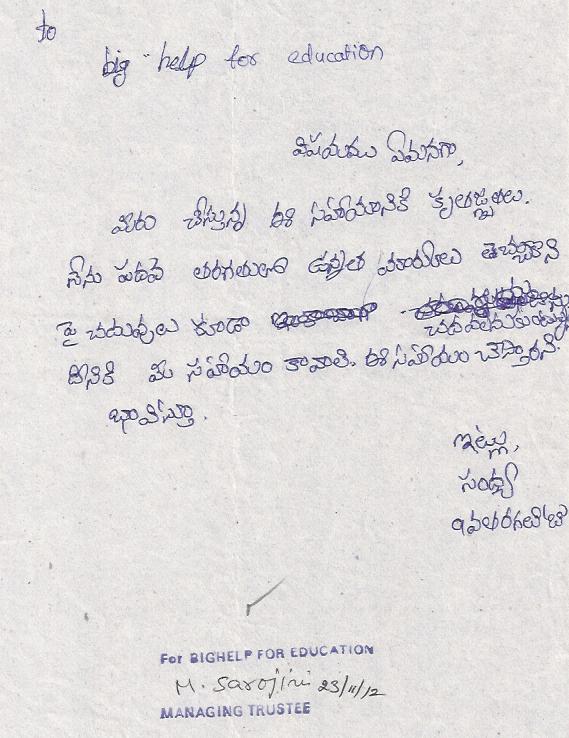 to
big help for education
విషయము ఏమనగా,
మీరు చేస్తున్న ఈ సహాయానికి కృతజ్ఞతలు.
నేను పదవ తరగతులో ఉన్నత మార్కులు తెచ్చుకొని
పై చదువులు కూడా చదవాలనుకుంటున్నాను
దీనికి మీ సహాయం కావాలి. ఈ సహాయం చేస్తారని
భావిస్తూ.
ఇట్లు,
సంధ్య
9వ తరగతి 'బి'
For BIGHELP FOR EDUCATION
M. Sarojini 23/11/12
MANAGING TRUSTEE